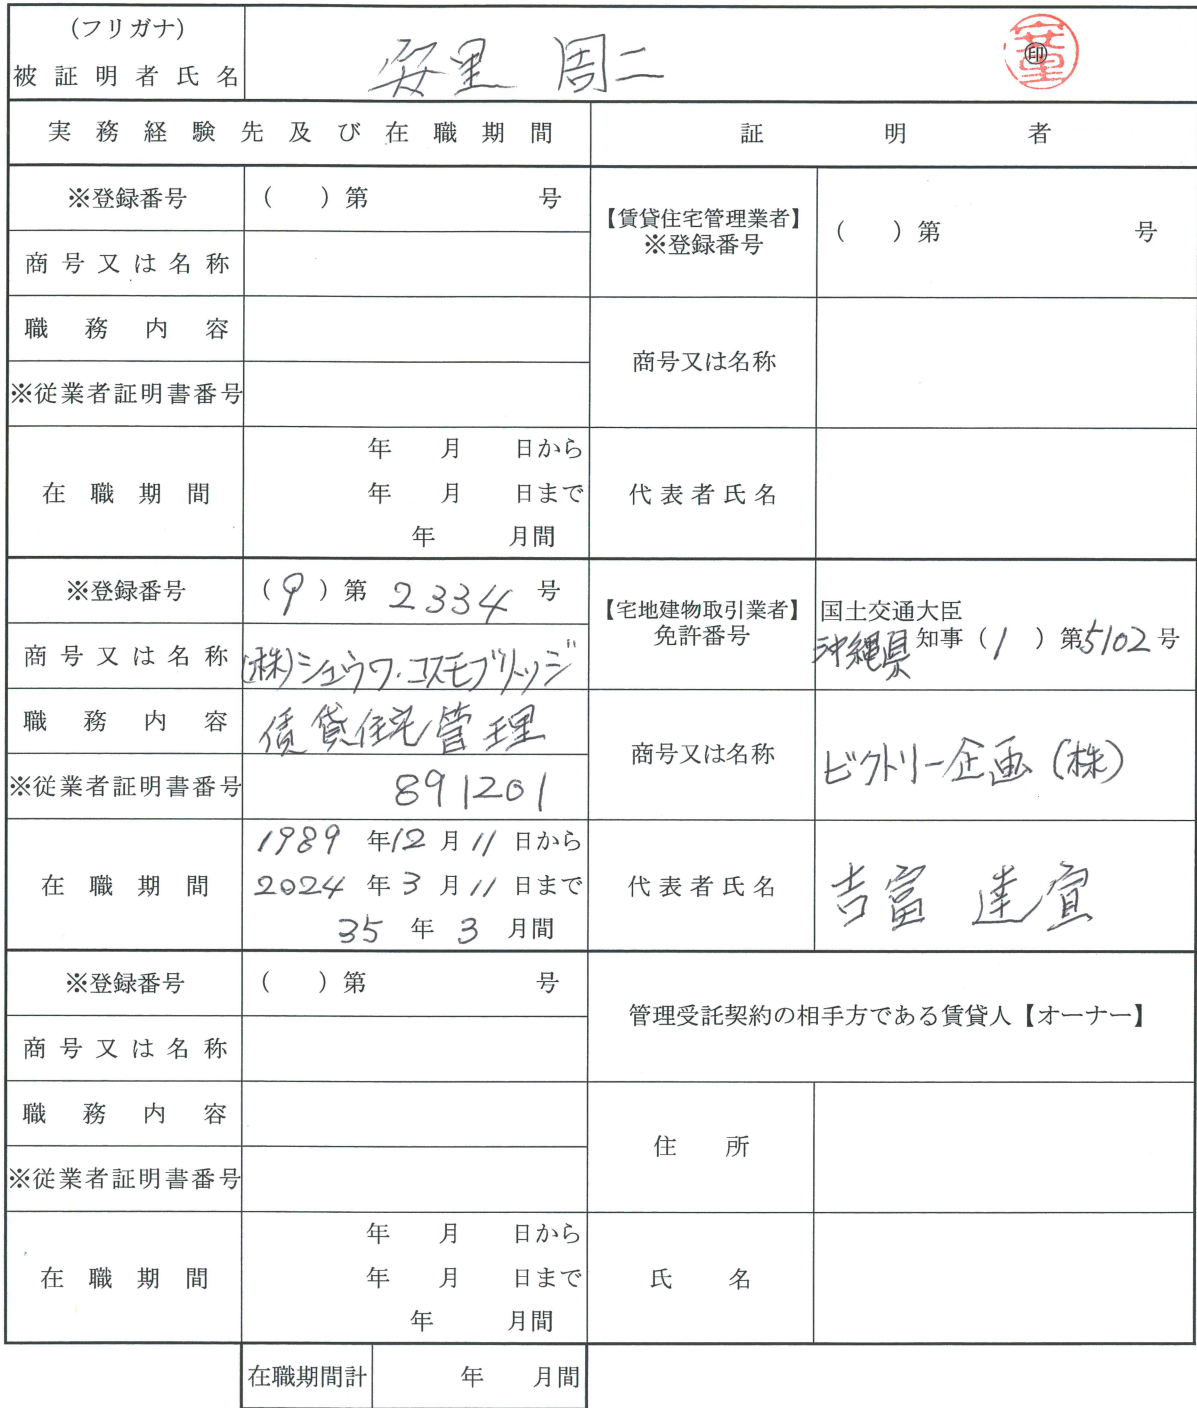 (フリガナ)
被証明者氏名 安里 周二 ㊞
実務経験先及び在職期間 証明者
※登録番号 ( )第 号
【賃貸住宅管理業者】
※登録番号 ( )第 号
商号又は名称
職務内容
商号又は名称
※従業者証明書番号
在職期間
年 月 日から
年 月 日まで
年 月間
代表者氏名
※登録番号 (9)第 2334 号
【宅地建物取引業者】
免許番号
国土交通大臣
沖縄県 知事(1)第5102号
商号又は名称 (株)シュウワ・コスモブリッジ
職務内容 賃貸住宅管理
商号又は名称 ビクトリー企画(株)
※従業者証明書番号 891201
在職期間
1989 年12月11日から
2024 年3月11日まで
35 年 3 月間
代表者氏名 吉富 達宣
※登録番号 ( )第 号
管理受託契約の相手方である賃貸人【オーナー】
商号又は名称
職務内容
住所
※従業者証明書番号
在職期間
年 月 日から
年 月 日まで
年 月間
氏名
在職期間計 年 月間